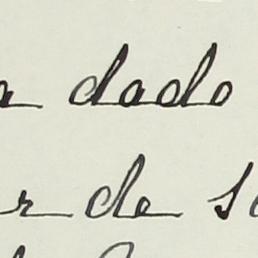 a dado
r de s